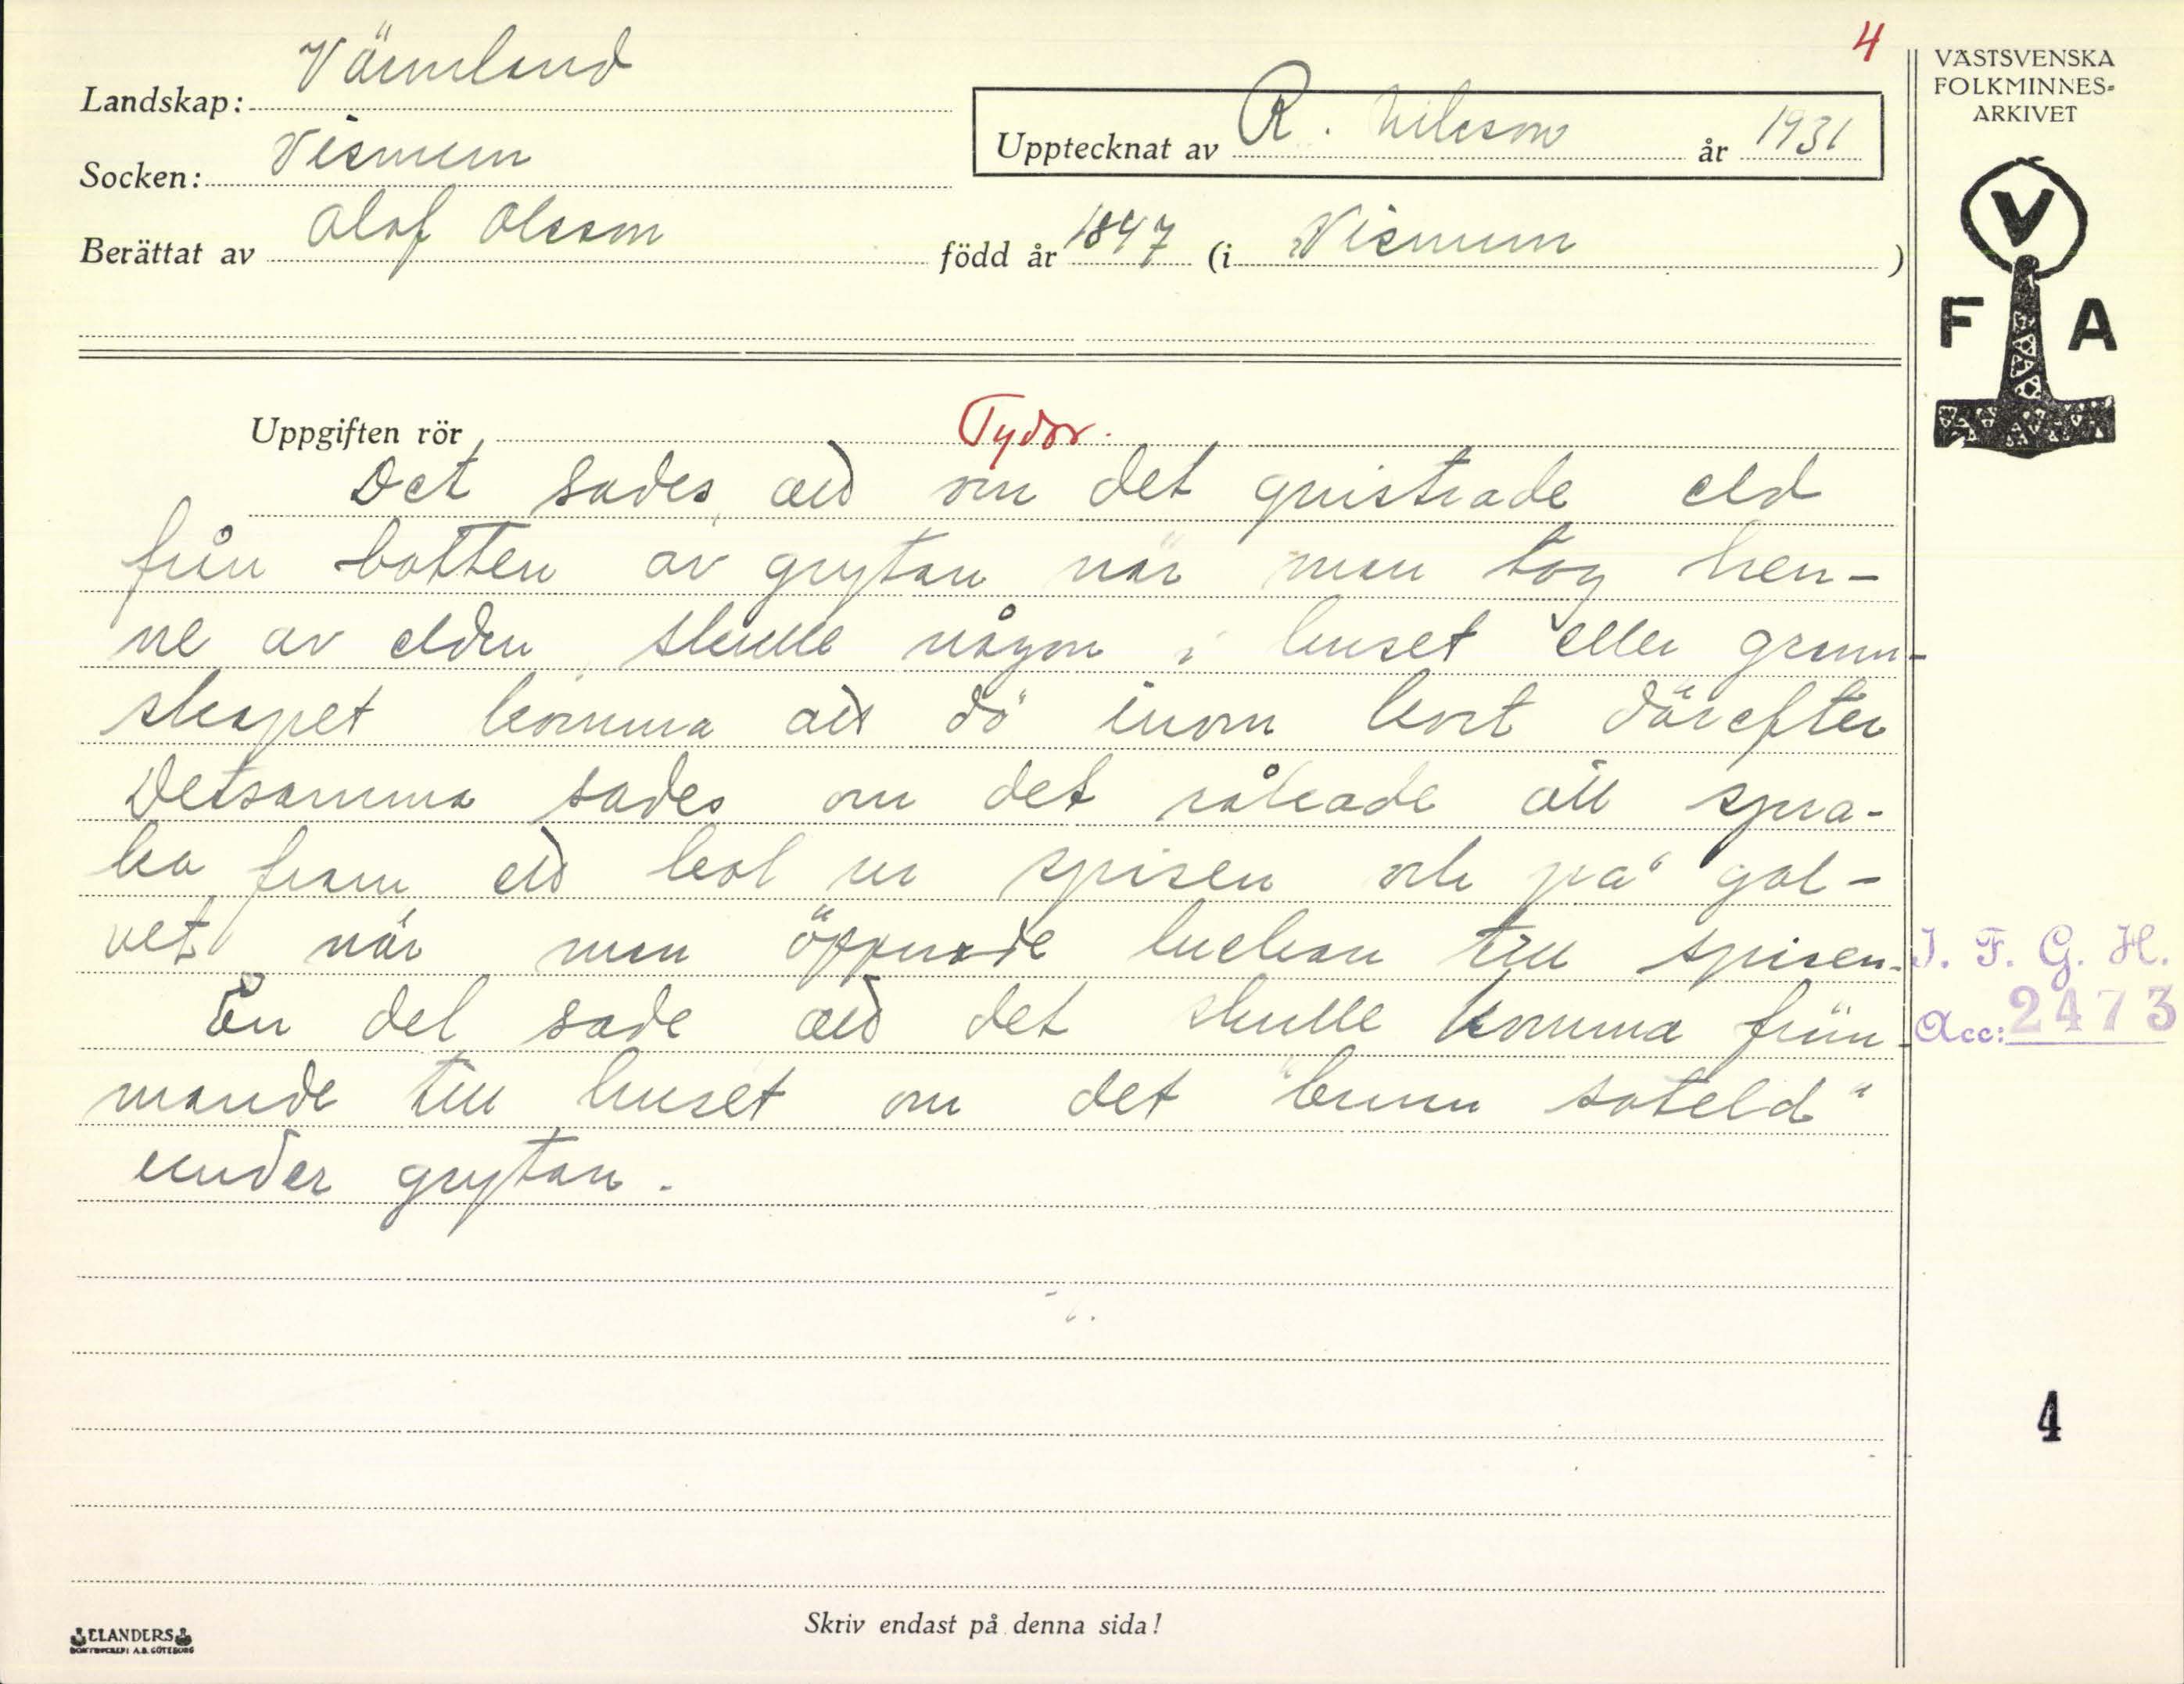 4
VÄSTSVENSKA
FOLKMINNES-
ARKIVET
Landskap: Värmland
Upptecknat av R. Nilsson år 1931
Socken: Visnum
Berättat av Olof Olsson född år 1847 (i Visnum )
V
F A
Uppgiften rör Tydor.
Det sades, att om det gnistrade eld
från botten av grytan när man tog hen-
ne av elden, skulle någon i huset eller grann-
skapet komma att dö inom kort därefter
Detsamma sades om det råkade att spra-
ka fram eld kol ur spisen och på gol-
vet när man öppnade luckan till spisen.
En del sade att det skulle komma främ-
mande till huset om det "brunn soteld"
under grytan.
I. F. G. H.
Acc: 2473
4
Skriv endast på denna sida!
ELANDERS
BOKTRYCKERI A.B. GÖTEBORG